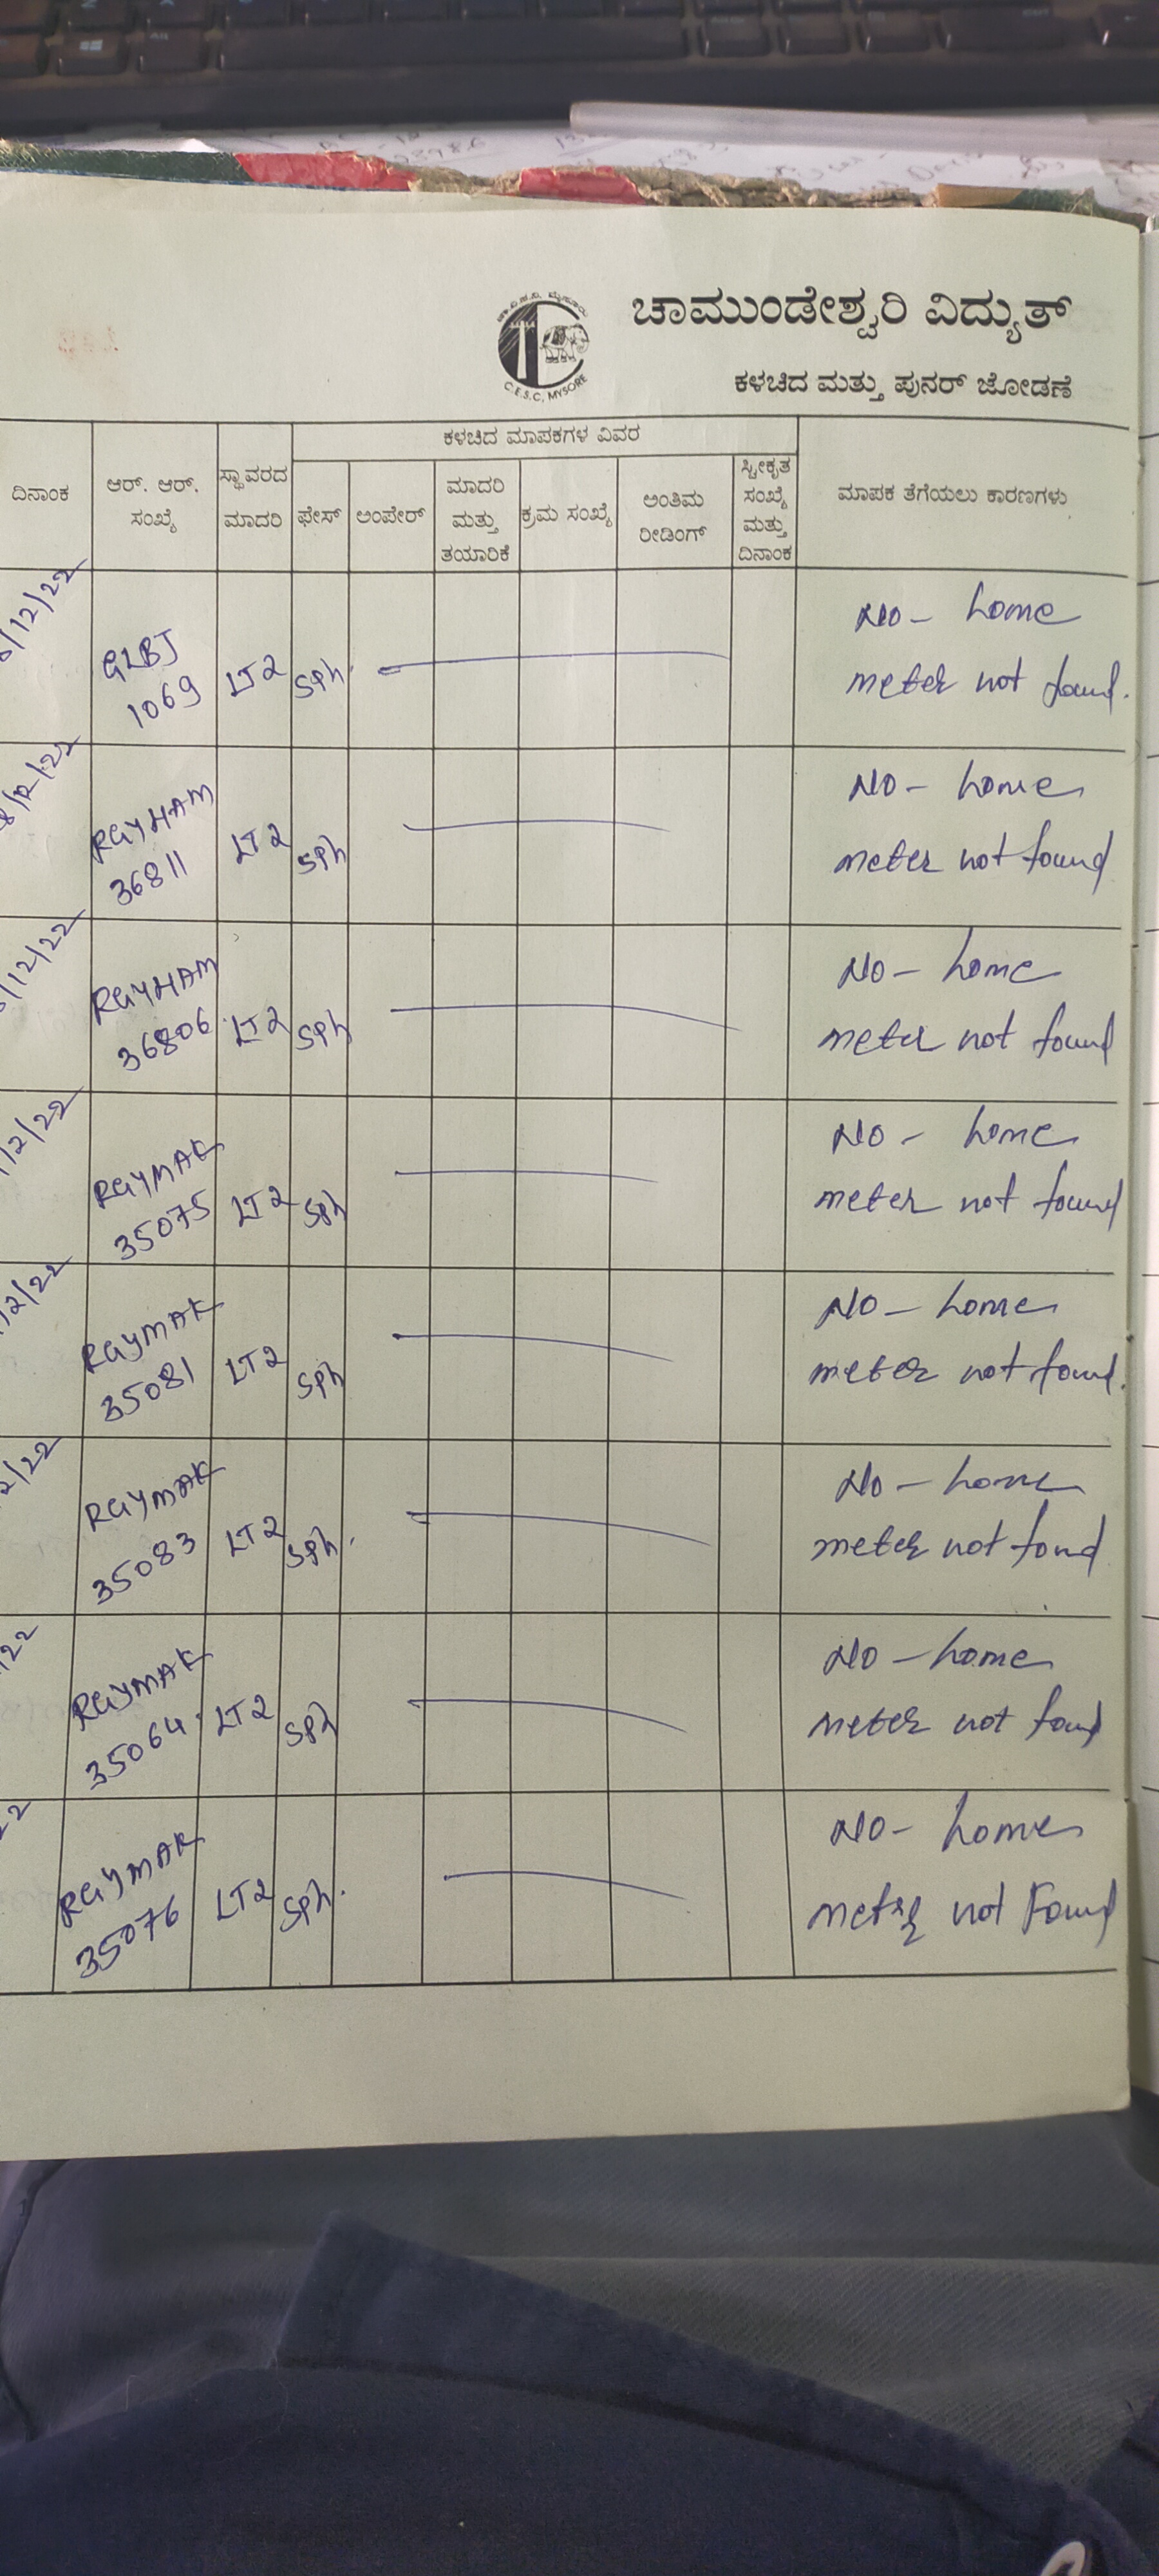 ಚಾ.ವಿ.ಸ.ನಿ. ಮೈಸೂರು
C.E.S.C, MYSORE
ಚಾಮುಂಡೇಶ್ವರಿ ವಿದ್ಯುತ್
ಕಳಚಿದ ಮತ್ತು ಪುನರ್ ಜೋಡಣೆ
ದಿನಾಂಕ
ಆರ್. ಆರ್.
ಸಂಖ್ಯೆ
ಸ್ಥಾವರದ
ಮಾದರಿ
ಕಳಚಿದ ಮಾಪಕಗಳ ವಿವರ
ಫೇಸ್
ಅಂಪೇರ್
ಮಾದರಿ
ಮತ್ತು
ತಯಾರಿಕೆ
ಕ್ರಮ ಸಂಖ್ಯೆ
ಅಂತಿಮ
ರೀಡಿಂಗ್
ಸ್ವೀಕೃತ
ಸಂಖ್ಯೆ
ಮತ್ತು
ದಿನಾಂಕ
ಮಾಪಕ ತೆಗೆಯಲು ಕಾರಣಗಳು
/12/22
GLBJ
1069
LT2
SPh.
No - home
meter not found.
8/12/22
RGYHAM
36811
LT2
SPh
No - home
meter not found
/12/22
RGYHAM
36806
LT2
SPh
No - home
meter not found
/12/22
RGYMAK
35075
LT2
SPh
No - home
meter not found
12/22
RGYMAK
35081
LT2
SPh
No - home
meter not found.
2/22
RGYMAK
35083
LT2
SPh.
No - home
meter not found
22
RGYMAK
35064
LT2
SPh
No - home
meter not found
22
RGYMAK
35076
LT2
SPh.
No - home
meter not Found